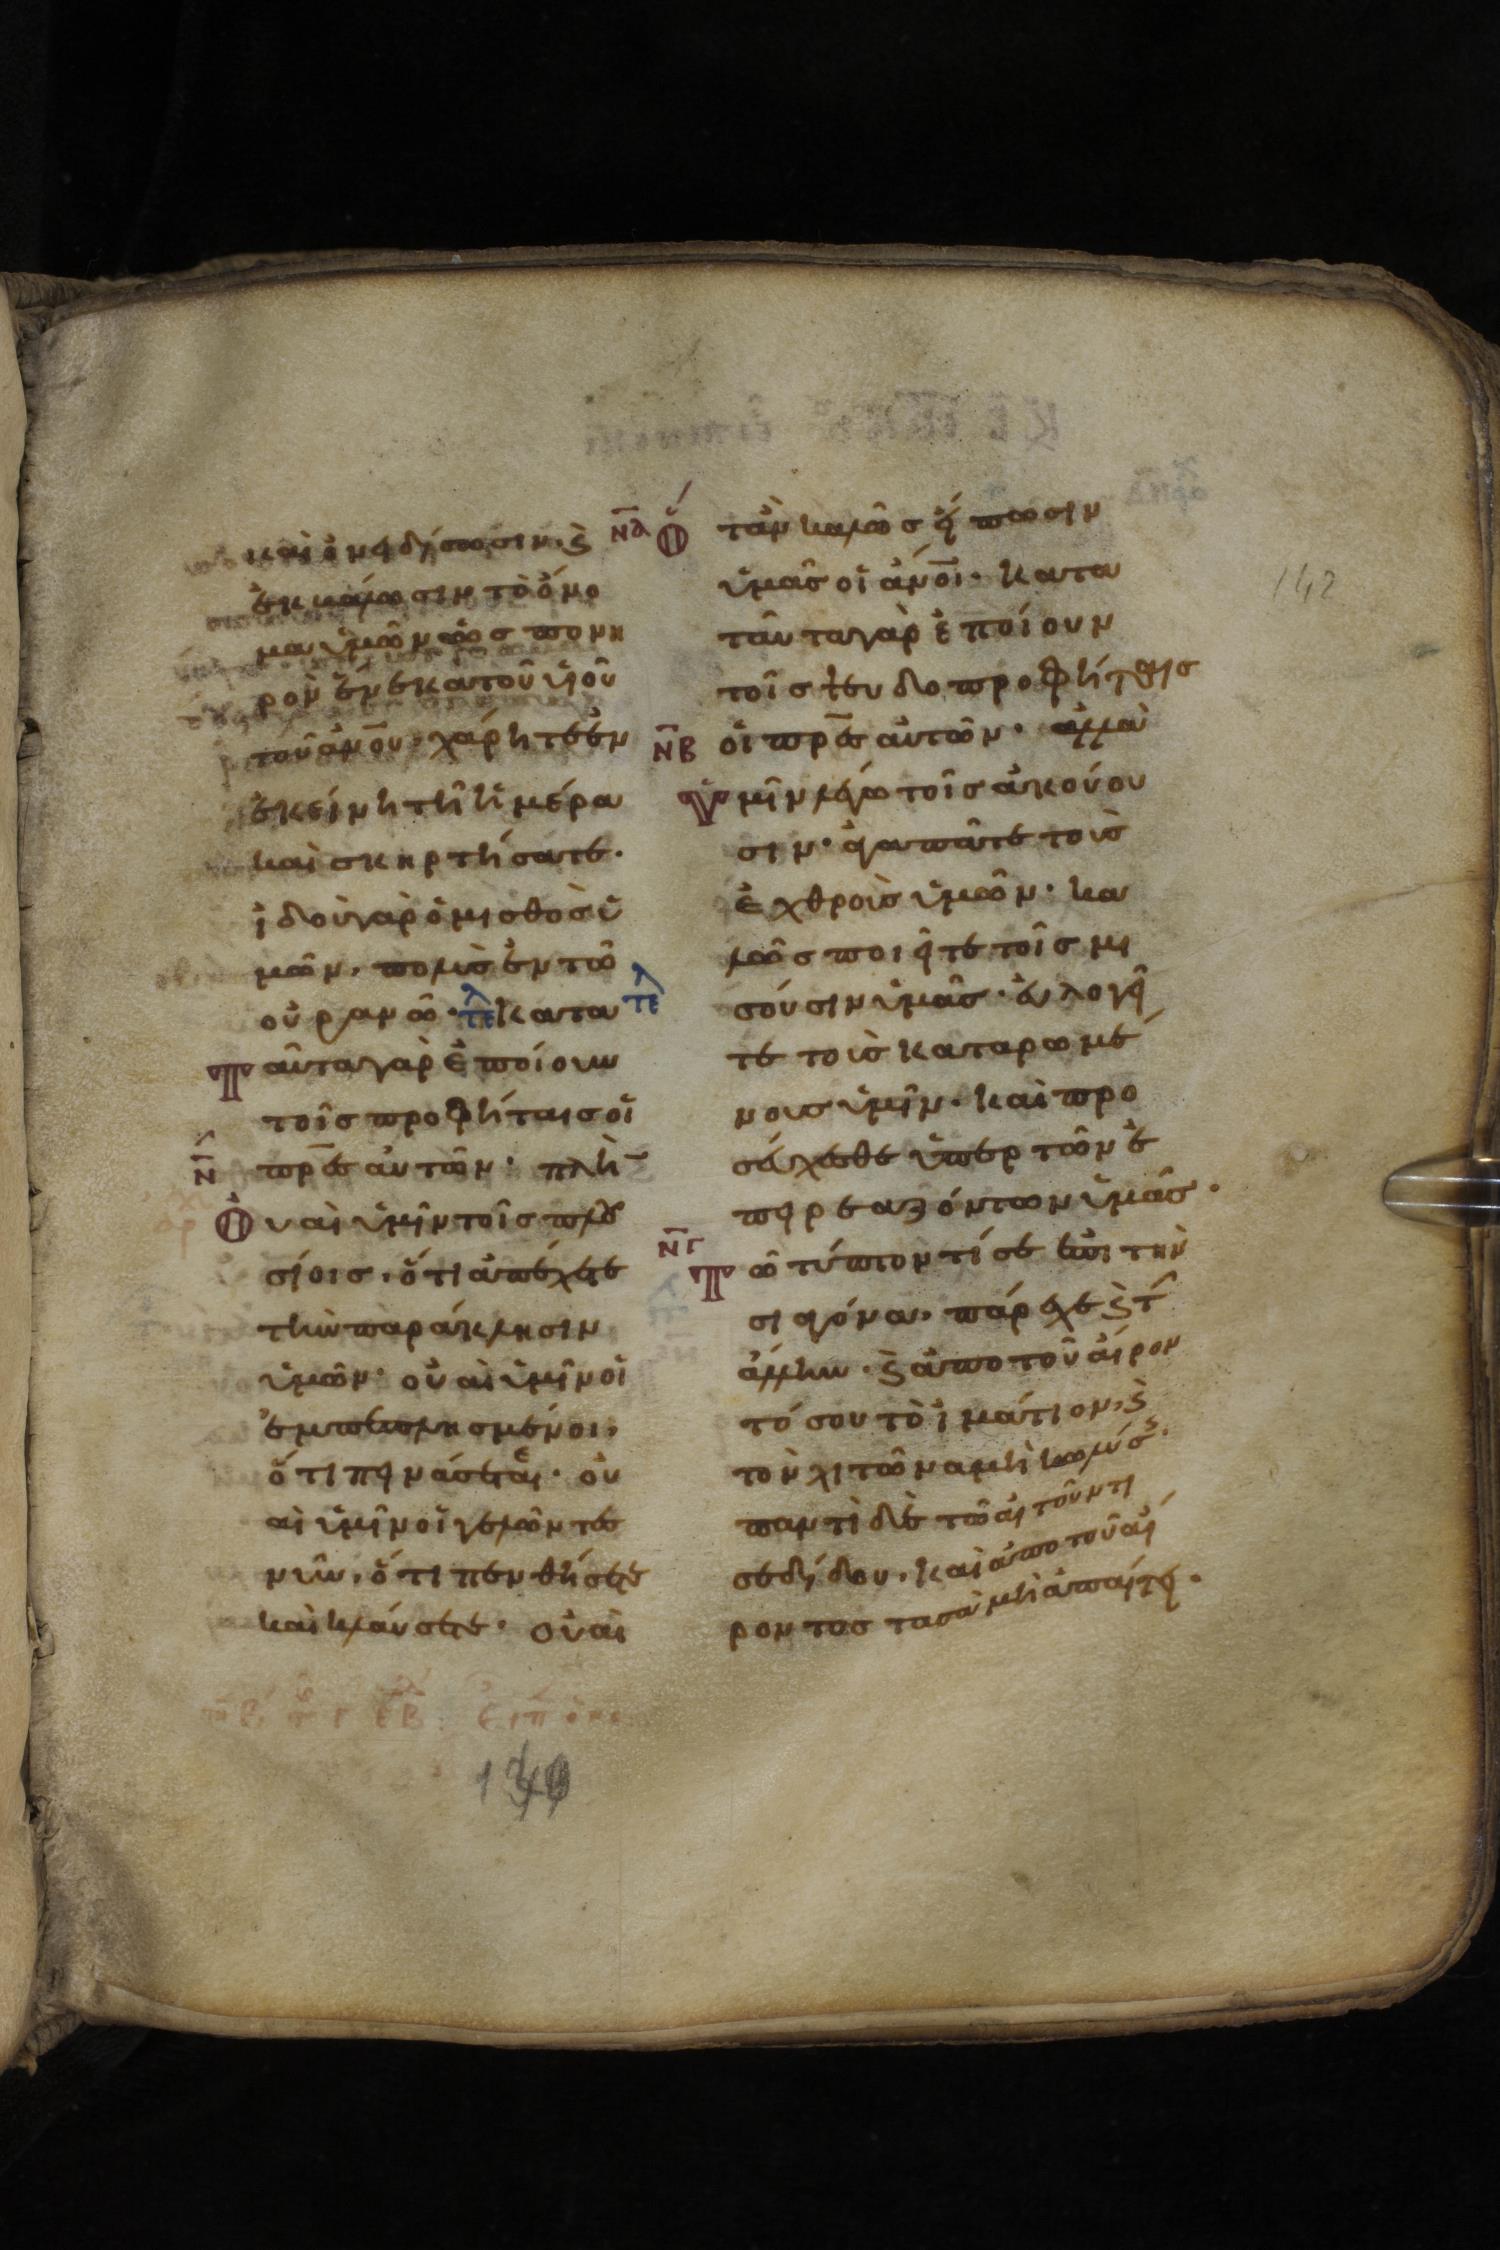 καὶ ὀνειδήσωσιν· ϛ̀
ἐκβάλωσιν τὸ ὄνο
μα ὑμῶν ὡς πονη
ρὸν ἕνεκα τοῦ υἱοῦ
τοῦ ἀν̅ου· χάρητε ἐν
ἐκείνη τῆ ἡμέρα
καὶ σκηρτήσατε·
ἰδοὺ γὰρ ὁ μισθὸς ὑ
μῶν, πολὺς ἐν τῶ
οὐρανῶ· κατα
Ταῦτα γὰρ ἐποίουν
τοῖς προφήταις οἱ
πρ̅ες αὐτῶν· πλὴ̅
Οὐαὶ ὑμῖν τοῖς πλου
σίοις, ὅτι ἀπέχετε
τὴν παράκλησιν
ὑμῶν· οὐαὶ ὑμῖν οἱ
ἐμπεπλησμένοι,
ὅτι πεινάσεται· οὐ
αὶ ὑμῖν οἱ γελῶντες
νῦν, ὅτι πενθήσετε
καὶ κλαύσετε· οὐαὶ
Ν̅Α
Ὅταν καλῶς εἴπωσιν
ὑμᾶς οἱ ἀν̅οι· κατα
ταῦτα γὰρ ἐποίουν
τοῖς ψευδοπροφήταις
Ν̅Β οἱ πρ̅ες αὐτῶν· ἀλλὰ
Ὑμῖν λέγω τοῖς ἀκούου
σιν· ἀγαπᾶτε τοὺς
ἐχθροὺς ὑμῶν· κα
λῶς ποιεῖτε τοῖς μι
σούσιν ὑμᾶς· εὐλογεῖ
τε τοὺς καταρωμέ
νους ὑμῖν· καὶ προ
σεύχεσθε ὑπερ τῶν ἐ
πηρεαζόντων ὑμᾶς·
Ν̅Γ
Τῶ τύπτοντί σε ἐπὶ τὴν
σιαγόνα, πάρεχε ϛ̀ τ̑
ἄλλην· ϛ̀ ἀπο τοῦ αίρον
τό σου τὸ ἱμάτιον, ϛ̀
τὸν χιτῶνα μὴ κωλύσῃς·
παντὶ δὲ τῶ αἰτοῦντί
σε δίδου, καὶ ἀπο τοῦ αἴ
ροντος τα σὰ μὴ ἀπαίτει·
142